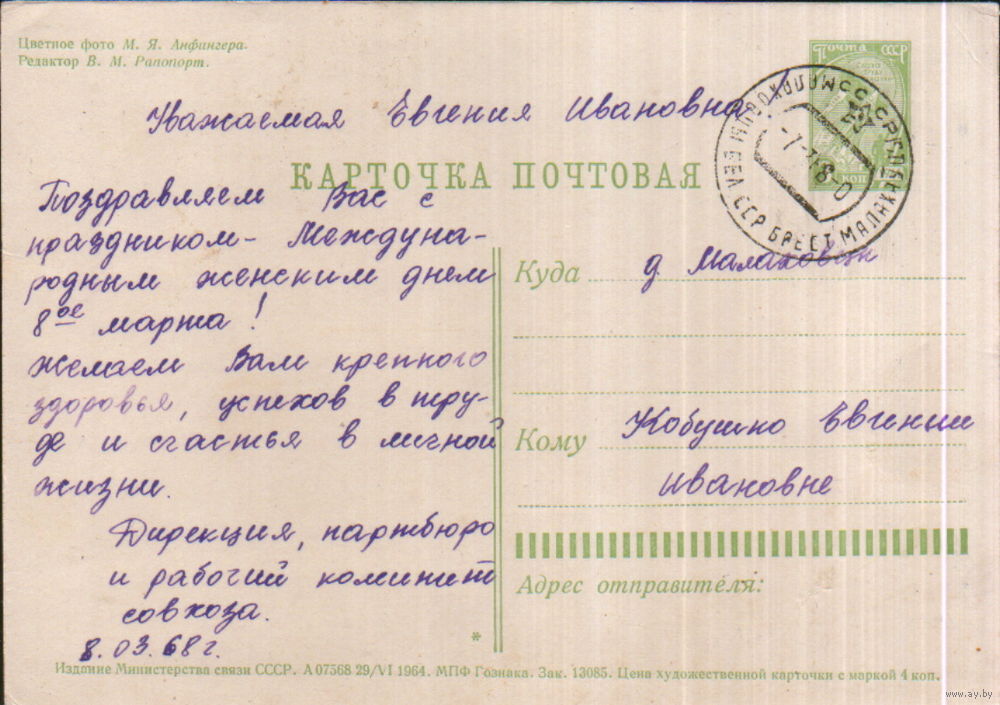 Цветное фото М. Я. Анфингера.
Редактор В. М. Рапопорт.
Почта СССР
КОП
Уважаемая Евгения Ивановна!
КАРТОЧКА ПОЧТОВАЯ
БЕЛ ССР БРЕСТ
Поздравляем Вас с
праздником - Междуна-
родным женским днем
8ое марта!
Желаем Вам крепкого
здоровья, успехов в тру-
де и счастья в личной
жизни.
Дирекция, партбюро
и рабочий комитет
совхоза.
8.03.68 г.
*
Куда д. Малаховцы
Кому Кобушко Евгении
Ивановне
Адрес отправителя:
Издание Министерства связи СССР. А 07568 29/VI 1964. МПФ Гознака. Зак. 13085. Цена художественной карточки с маркой 4 коп.
www.ay.by